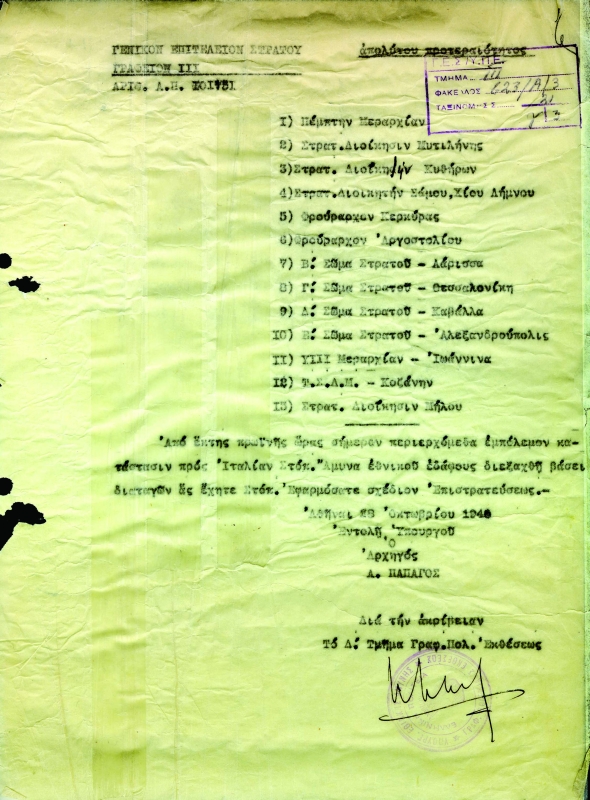 ΓΕΝΙΚΟΝ ΕΠΙΤΕΛΕΙΟΝ ΣΤΡΑΤΟΥ
ἀπολύτου προτεραιότητος
ΓΡΑΦΕΙΟΝ ΙΙΙ
ΑΡΙΘ. Α.Π.
Γ.Ε.Σ./
ΤΜΗΜΑ ΙΙΙ
ΦΑΚΕΛΛΟΣ 623/Α/3
ΤΑΞΙΝΟΜΗΣΙΣ
1) Πέμπτην Μεραρχίαν
2) Στρατ.Διοίκησιν Μυτιλήνης
3)Στρατ. Διοίκησιν Κυθήρων
4)Στρατ.Διοικητήν Σάμου,Χίου Λήμνου
5) Φρούραρχον Κερκύρας
6)Φρούραρχον Ἀργοστολίου
7) Β΄. Σῶμα Στρατοῦ - Λάρισσα
8) Γ΄. Σῶμα Στρατοῦ - Θεσσαλονίκη
9) Δ΄. Σῶμα Στρατοῦ - Καβάλλα
10) Ε΄. Σῶμα Στρατοῦ - Ἀλεξανδρούπολις
11) ΥΙΙΙ Μεραρχίαν - Ἰωάννινα
12) Τ.Σ.Δ.Μ. - Κοζάνην
13) Στρατ. Διοίκησιν Μήλου
Ἀπό ἕκτης πρωϊνῆς ὥρας σήμερον περιερχόμεθα ἐμπόλεμον κα-
τάστασιν πρός Ἰταλίαν Στόπ. Ἄμυνα ἐθνικοῦ ἐδάφους διεξαχθῆ βάσει
διαταγῶν ἅς ἔχητε Στόπ. Ἐφαρμόσατε σχέδιον Ἐπιστρατεύσεως.-
Ἀθῆναι 28 Ὀκτωβρίου 1940
Ἐντολῇ Ὑπουργοῦ
Ὁ
Ἀρχηγός
Α. ΠΑΠΑΓΟΣ
Διά τήν ἀκρίβειαν
Τό Δ΄. Τμῆμα Γραφ.Πολ. Ἐκθέσεως